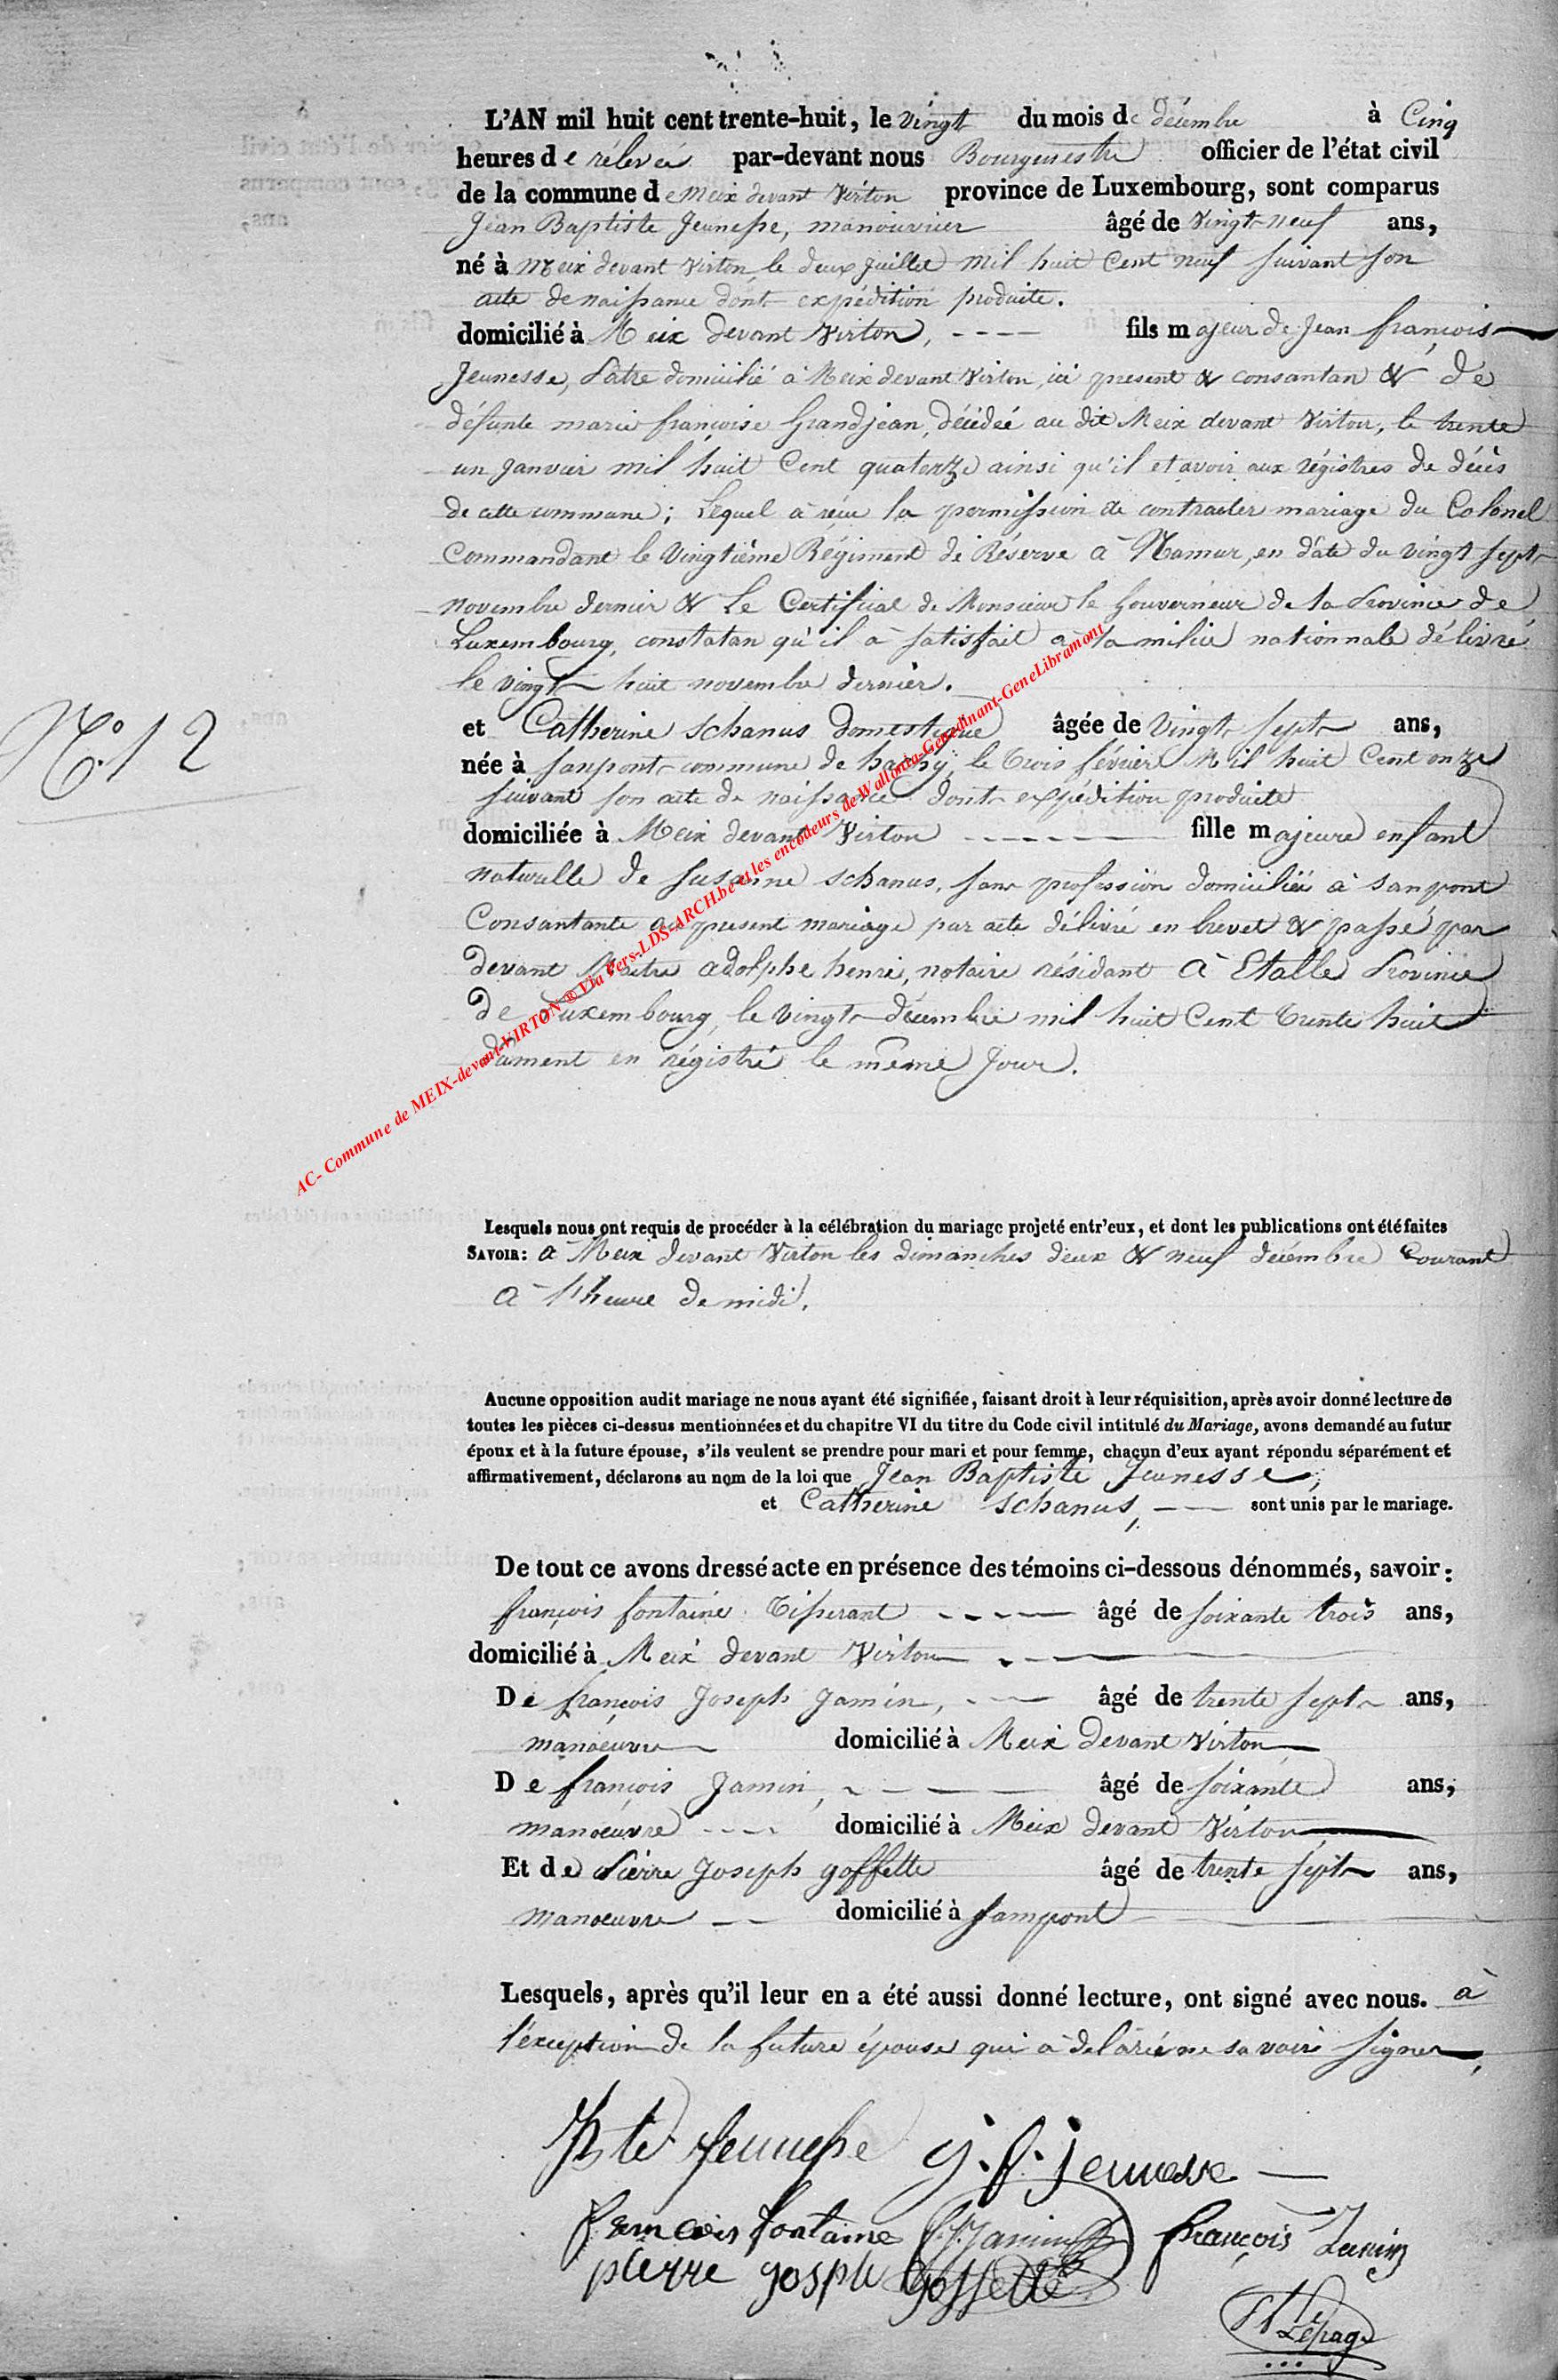 L'AN mil huit cent trente-huit, le vingt du mois de décembre à Cinq
heures de rélevée par-devant nous Bourguemestre officier de l'état civil
de la commune de Meix devant Virton province de Luxembourg, sont comparus
Jean Baptiste Jeunesse, manouvrier âgé de vingt neuf ans,
né à Meix devant Virton, le deux Juillet mil huit Cent neuf suivant son
acte de naissance dont expédition produite.
domicilié à Meix devant Virton, fils majeur de Jean françois
Jeunesse, Patre domicilié à Meix devant Virton, ici present & consantan & de
défunte marie françoise Grandjean, décédeé au dit Meix devant Virton, le trente
un Janvier mil huit Cent quatorze ainsi qu'il et avoir aux régistres de décès
de cette commune; Lequel à réçue la permission de contracter mariage du Colonel
Commandant le Vingtième Régiment de Réserve à Namur, en date du vingt sept
novembre dernier & Le Certificat de Monsieur le Gouverneur de la Province de
Luxembourg, constatan qu'il à satisfait à la milice nationnale délivré
le vingt huit novembre dernier.
N.º 12
et Catherine schanus domestique âgée de vingt sept ans,
née à sanpont commune de hachy, le trois février Mil huit Cent onze
suivant son acte de naissance dont expédition produite
domiciliée à Meix devant Virton fille majeure enfant
naturelle de susanne schanus, sans profession domiciliée à sanpont
Consantante au present mariage par acte délivré en brevet & passé par
devant Maitre adolphe henri, notaire résidant à Etalle Province
de Luxembourg, le vingt décembre mil huit Cent trente huit
dûment en régistré le même Jour.
AC- Commune de MEIX-devant-VIRTON ® Via Pers-LDS-ARCH.be et les encodeurs de Wallonia-Genedinant-GeneLibramont
Lesquels nous ont requis de procéder à la célébration du mariage projeté entr'eux, et dont les publications ont été faites
SAVOIR: à Meix devant Virton les dimanches deux & neuf décembre Courant
à l'heure de midi.
Aucune opposition audit mariage ne nous ayant été signifiée, faisant droit à leur réquisition, après avoir donné lecture de
toutes les pièces ci-dessus mentionnées et du chapitre VI du titre du Code civil intitulé du Mariage, avons demandé au futur
époux et à la future épouse, s'ils veulent se prendre pour mari et pour femme, chacun d'eux ayant répondu séparément et
affirmativement, déclarons au nom de la loi que Jean Baptiste Jeunesse,
et Catherine schanus, sont unis par le mariage.
De tout ce avons dressé acte en présence des témoins ci-dessous dénommés, savoir:
françois fontaine Tisserant âgé de soixante trois ans,
domicilié à Meix devant Virton
De françois Joseph Jamin, âgé de trente sept ans,
manoeuvre domicilié à Meix devant Virton
De françois Jamin, âgé de soixante ans,
manoeuvre domicilié à Meix devant Virton
Et de Pierre Joseph goffette âgé de trente sept ans,
manoeuvre domicilié à sampont
Lesquels, après qu'il leur en a été aussi donné lecture, ont signé avec nous. à
l'éxception de la future épouse qui à délaré ne savoir signer,
Jeunesse j. f. jeunesse
francois fontaine f. J. Jamin françois Jamin
pierre gosph Goffette
Lepage